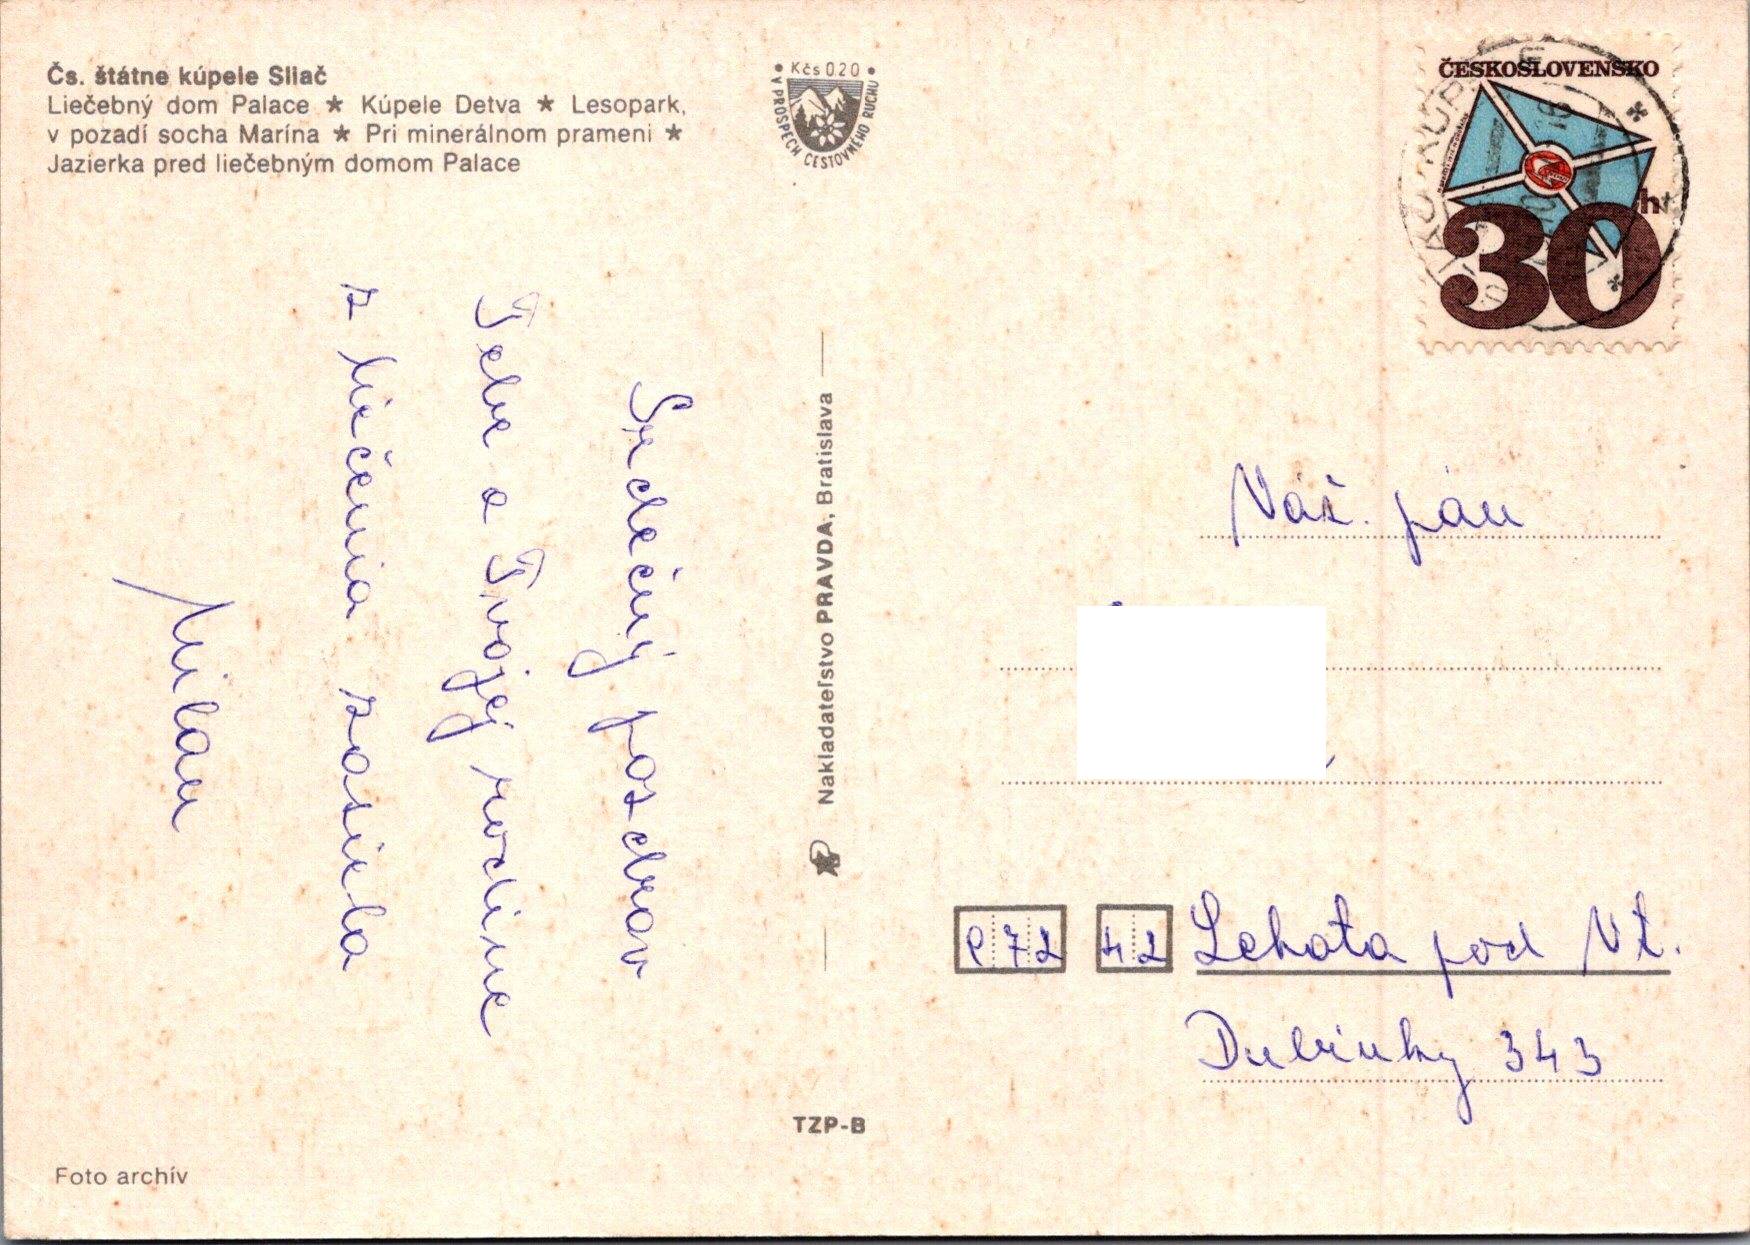 Čs. štátne kúpele Sliač
Liečebný dom Palace ★ Kúpele Detva ★ Lesopark,
v pozadí socha Marína ★ Pri minerálnom prameni ★
Jazierka pred liečebným domom Palace
• Kčs 0.20 •
V PROSPECH CESTOVNÉHO RUCHU
ČESKOSLOVENSKO
30 h
Srdečný pozdrav
Tebe a Tvojej rodine
z liečenia zasiela
Milan
Nakladateľstvo PRAVDA, Bratislava
Váž. pán
972 42 Lehota pod Vt.
Dubinky 343
TZP-B
Foto archív